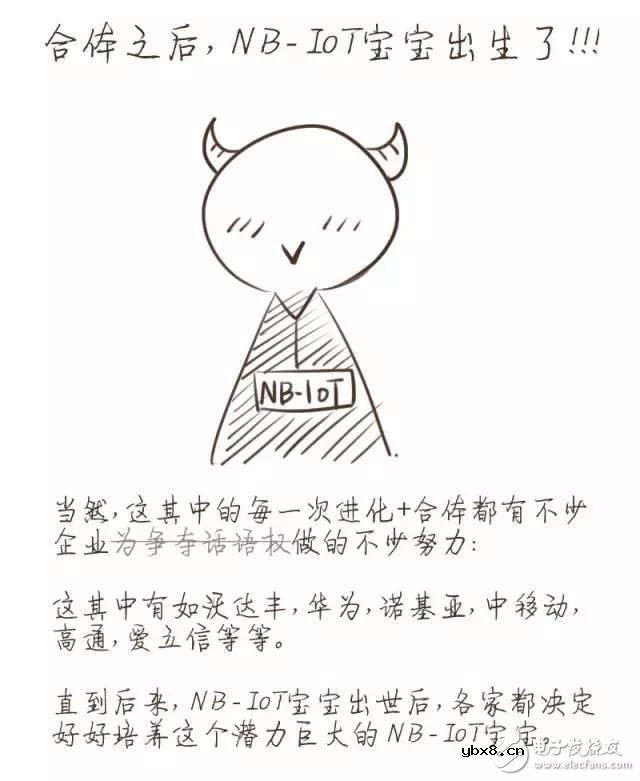 合体之后,NB-IoT宝宝出生了!!!
NB-IoT
当然,这其中的每一次进化+合体都有不少
企业为争夺话语权做的不少努力:
这其中有如沃达丰,华为,诺基亚,中移动,
高通,爱立信等等。
直到后来,NB-IoT宝宝出世后,各家都决定
好好培养这个潜力巨大的NB-IoT宝宝。
ybx8.cn
电子发烧友
www.elecfans.com